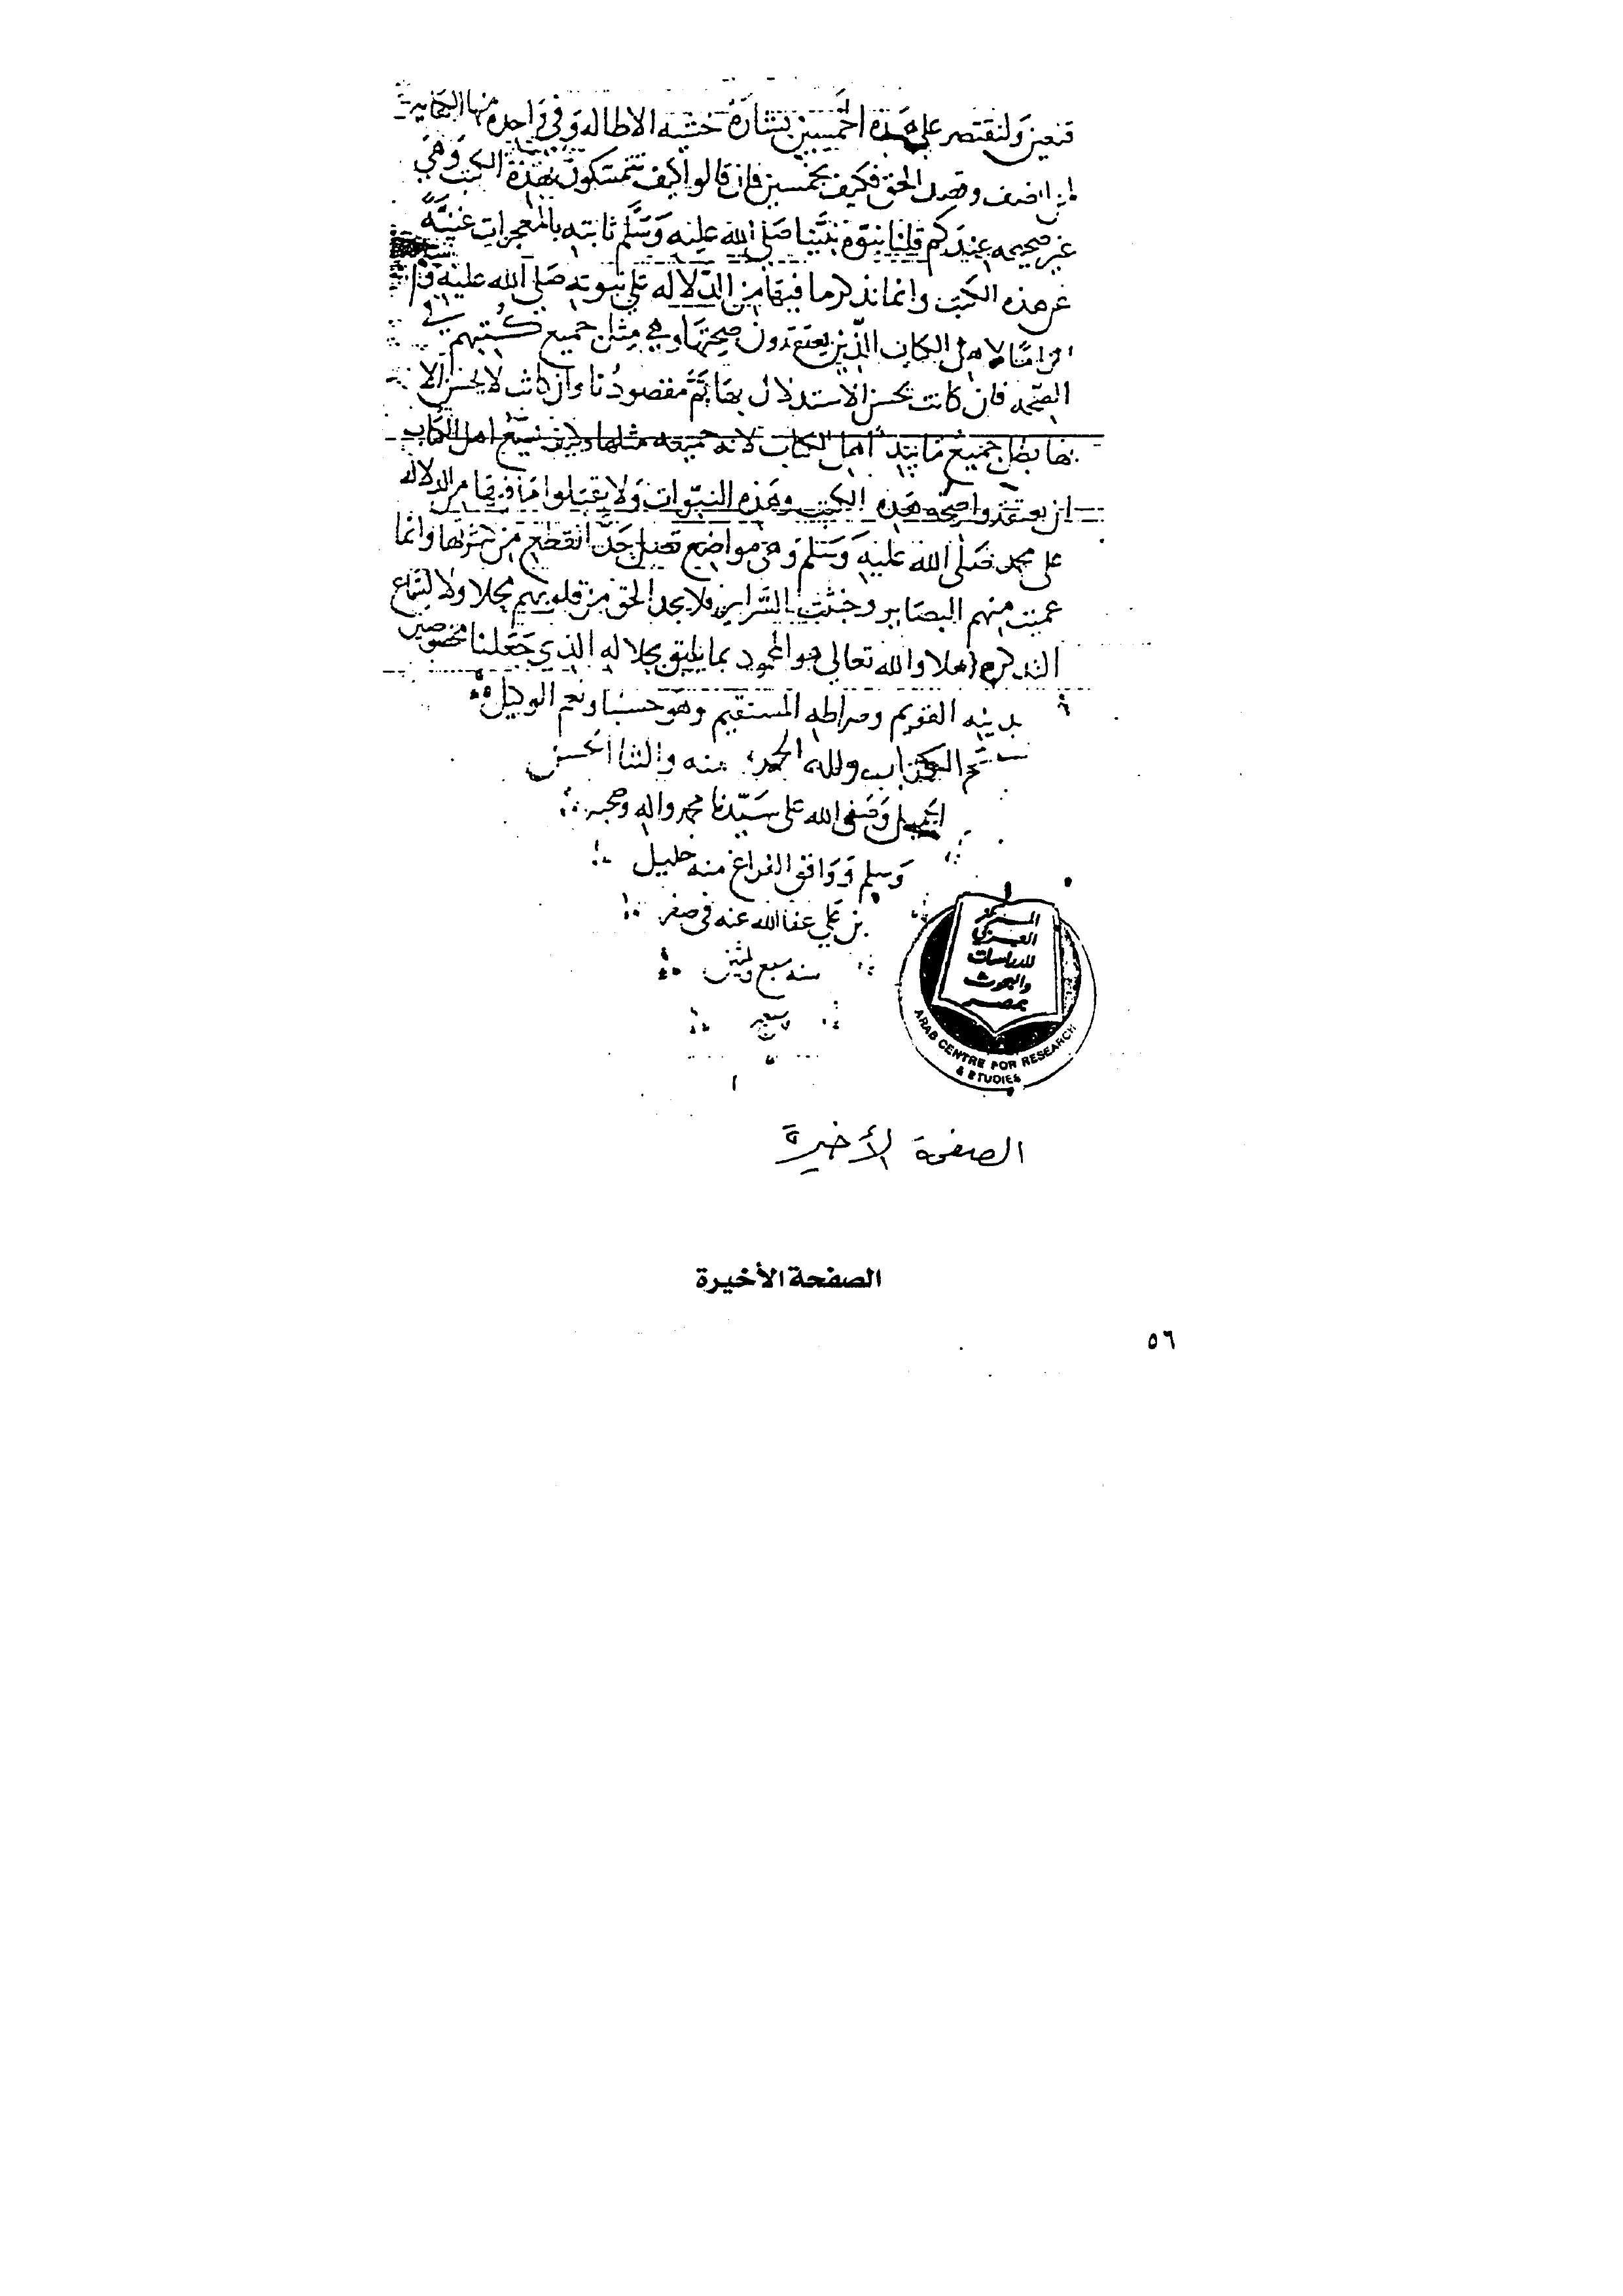 قنعين ولنقتصر على هذه الخمسين بشارة خشية الاطاله وفي واحده منها الكفايه
لمن انصف وقصد الحق فكيف بخمسين فان قالوا كيف تتمسكون بهذه الكتب وهي
غير صحيحه عندكم قلنا نبوة نبينا صلى الله عليه وسلم ثابته بالمعجزات غنية
عن هذه الكتب وانما نذكر ما فيها من الدلاله على نبوته صلى الله عليه
الزامًا لاهل الكتاب الذين يعتقدون صحتها وهي مثل جميع كتبهم في
الصحه فان كانت يحسن الاستدلال بها تم مقصودنا وان كانت لا يحسن الا
بها بطل جميع ما بيد اهل الكتاب لانه جميعه مثلها وكيف يسع اهل الكتاب
ان يعتقدوا صحة هذه الكتب وهذه النبوات ولا يقبلوا ما فيها من الدلاله
على محمد صلى الله عليه وسلم وفي مواضع تصل حد القطع من كثرتها وانما
عميت منهم البصاير وخبثت السراير فلا يجد الحق من قلوبهم محلا ولا لسماع
التذكره اهلا والله تعالى هو المحمود بما يليق بجلاله الذي جعلنا مخصوصين
بدينه القويم وصراطه المستقيم وهو حسبنا ونعم الوكيل
تم الكتاب ولله الحمد منه والثنا الحسن
الجميل وصلى الله على سيدنا محمد واله وصحبه
وسلم ووافق الفراغ منه خليل
بن علي عفا الله عنه في صفر
سنه سبع
المركز
العربي
للدراسات
والبحوث
بمصر
ARAB CENTRE FOR RESEARCH
& STUDIES
الصفحة الأخيرة
الصفحة الأخيرة
٥٦